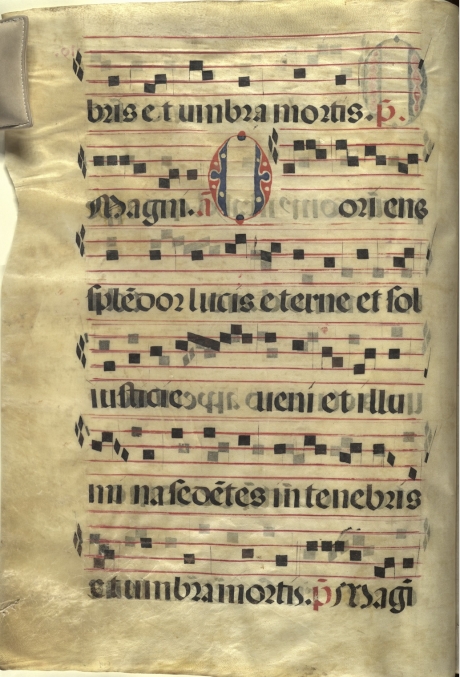 bris et umbra mortis. p̄.
Magni. ā O oriens
splēdor lucis eterne et sol
iusticie ueni et illu
mi na sedētēs in tenebris
et umbra mortis. p̄ Magi